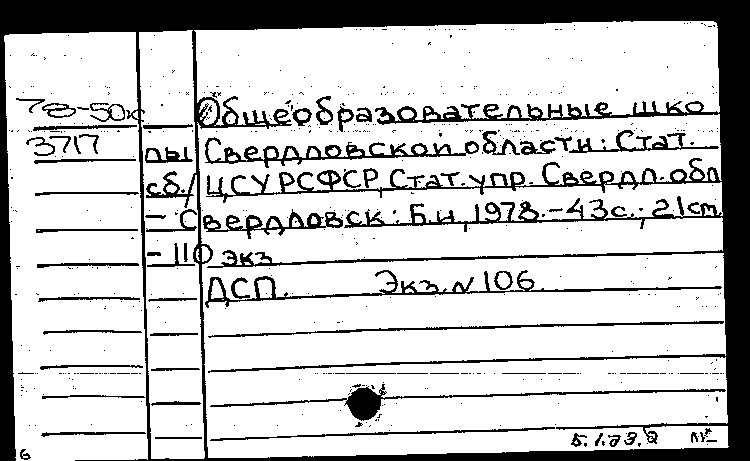 78-50к Общеобразовательные шко
3717 лы Свердловской области: Стат.
сб./ЦСУ РСФСР, Стат. упр. Свердл. обл
- Свердловск: Б.и, 1978.-43с.; 21см
- 110 экз
ДСП. Экз. № 106
6